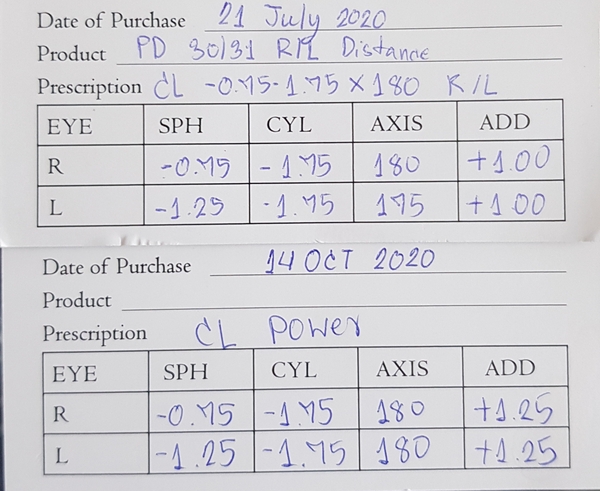 Date of Purchase 21 July 2020
Product PD 30/31 R/L Distance
Prescription CL -0.75-1.75 X 180 R/L
EYE SPH CYL AXIS ADD
R -0.75 -1.75 180 +1.00
L -1.25 -1.75 175 +1.00
Date of Purchase 14 OCT 2020
Product
Prescription CL Power
EYE SPH CYL AXIS ADD
R -0.75 -1.75 180 +1.25
L -1.25 -1.75 180 +1.25